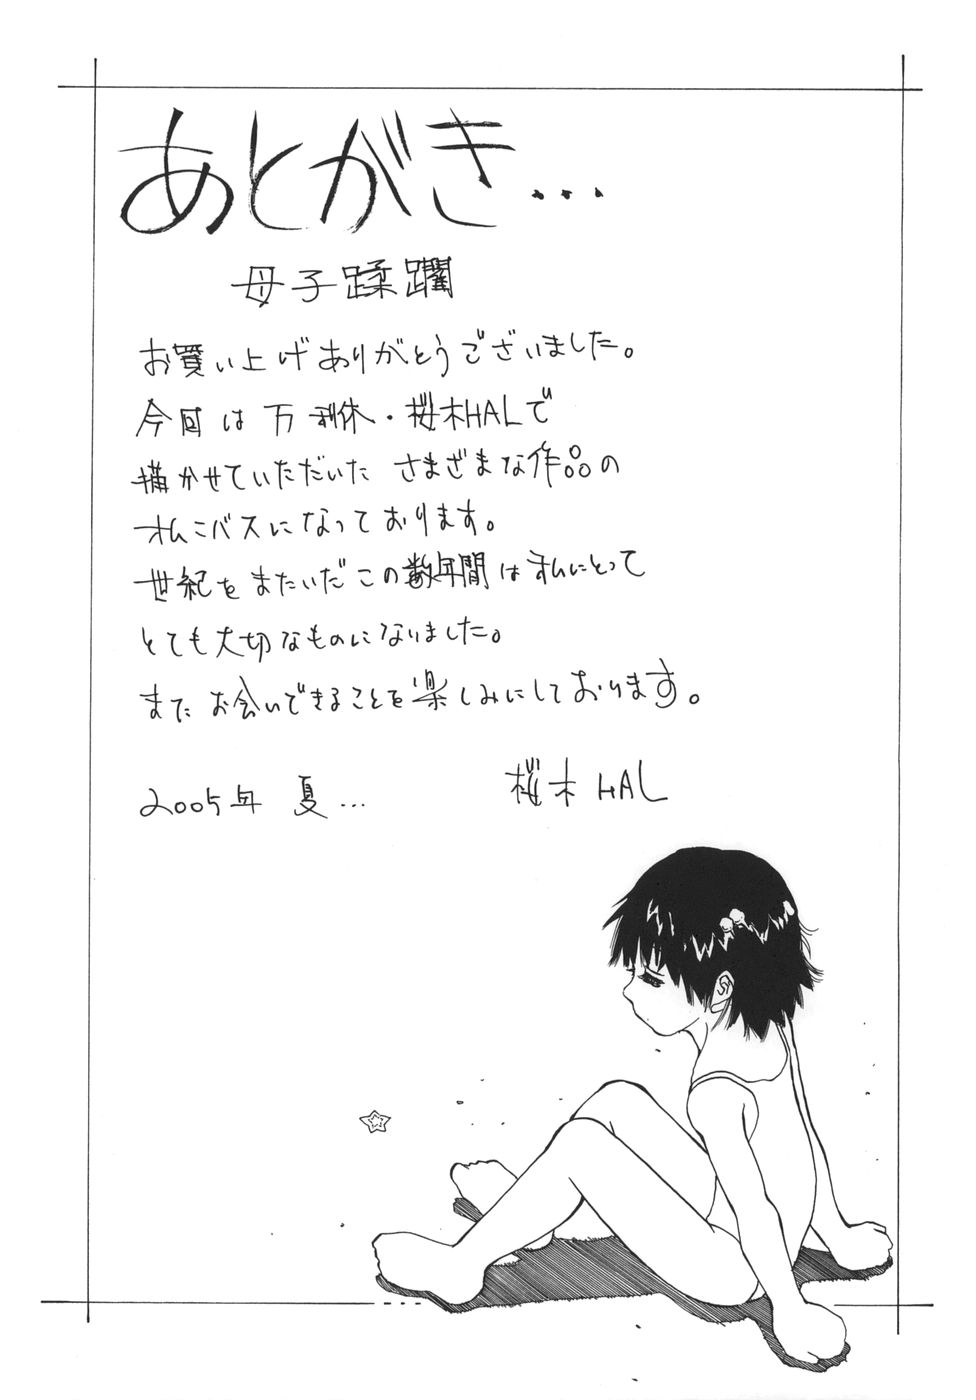 あとがき...
母子蹂躙
お買い上げありがとうございました。
今回は 万利休・桜木HALで
描かせていただいた さまざまな作品の
オムニバスになっております。
世紀をまたいだこの数年間は私にとって
とても大切なものになりました。
また お会いできることを楽しみにしております。
2005年 夏...
桜木HAL